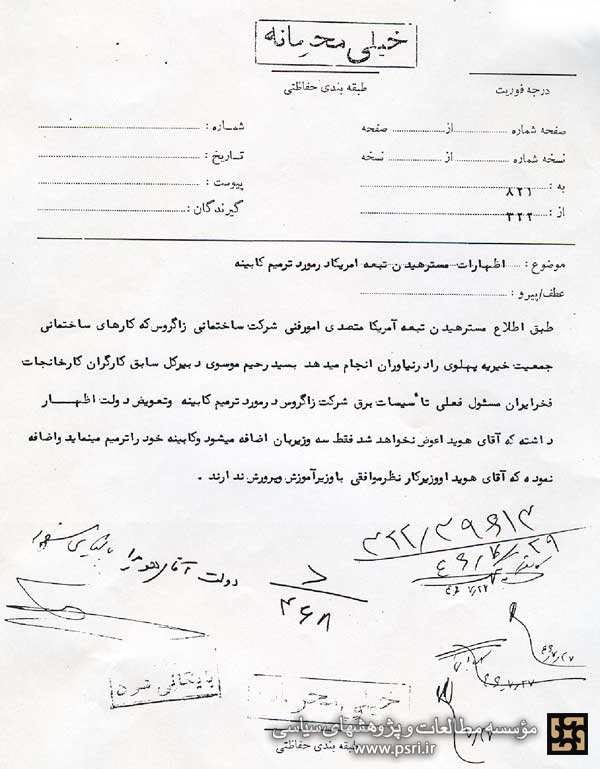 خیلی محرمانه
طبقه بندی حفاظتی
درجه فوریت
صفحه شماره ........ از ........ صفحه
نسخه شماره ........ از ........ نسخه
به : ۸۲۱
از : ۳۲۲
شماره :
تاریخ :
پیوست :
گیرندگان :
موضوع : اظهارات مسترهیدن تبعه امریکا درمورد ترمیم کابینه
عطف/پیرو :
طبق اطلاع مسترهیدن تبعه آمریکا متصدی امورفنی شرکت ساختمانی زاگروس که کارهای ساختمانی
جمعیت خیریه پهلوی را درنیاوران انجام میدهد بسید رحیم موسوی دبیرکل سابق کارگران کارخانجات
فخرایران مسئول فعلی تأسیسات برق شرکت زاگروس درمورد ترمیم کابینه وتعویض دولت اظهار
داشته که آقای هویدا عوض نخواهد شد فقط سه وزیربان اضافه میشود وکابینه خود را ترمیم مینماید واضافه
نموده که آقای هویدا ووزیرکار نظرموافقی با وزیرآموزش وپرورش ندارند .
۳۲۲/۳۹۶۱۳
۴۶/۷/۲۹
دولت آقای هویدا
۴۶۸
۴۶/۷/۲۷
بایگانی شود
خیلی محرمانه
طبقه بندی حفاظتی
مؤسسه مطالعات و پژوهشهای سیاسی
www.psri.ir